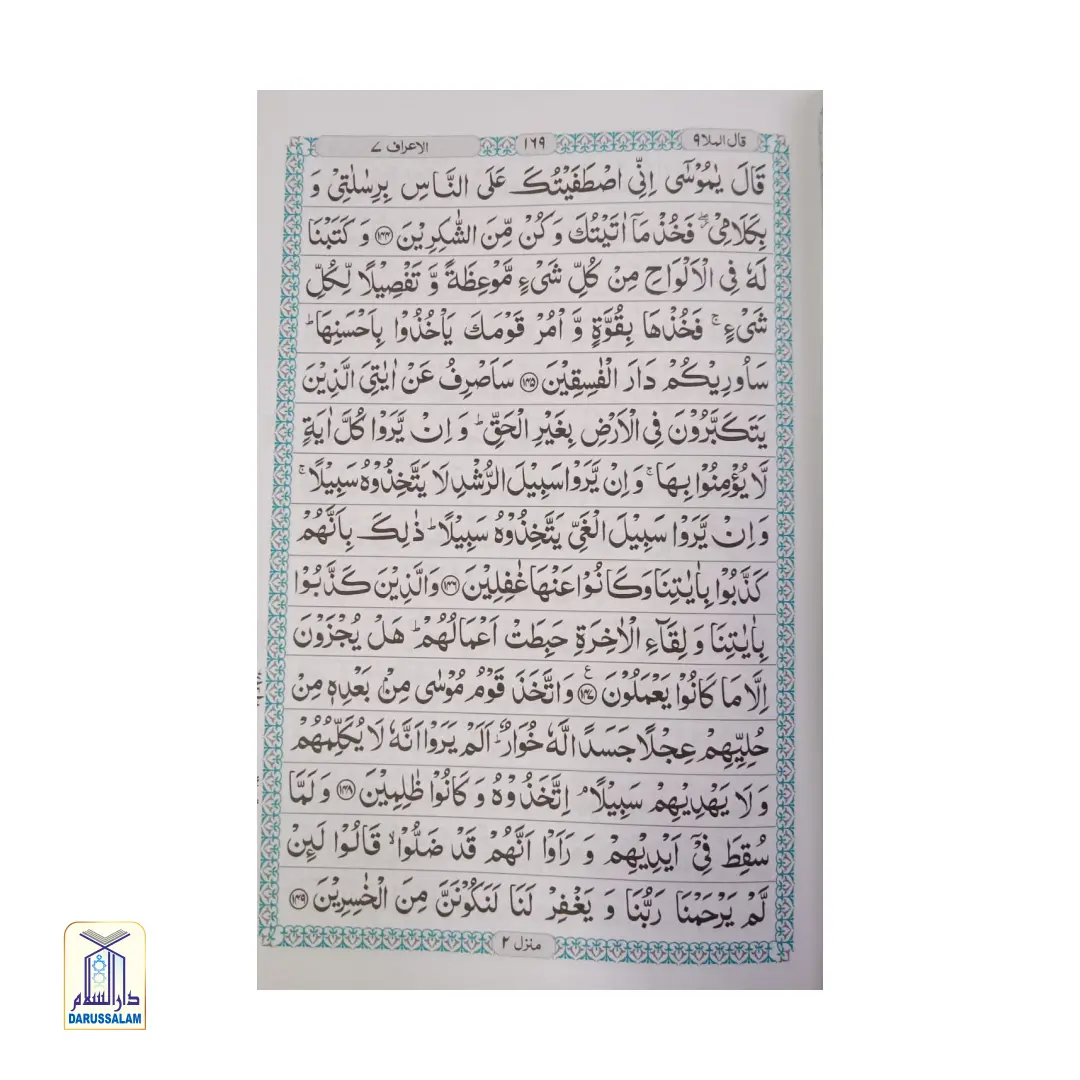 قال الملا ٩
١٦٩
الاعراف ٧
قَالَ يٰمُوْسٰٓى اِنِّى اصْطَفَيْتُكَ عَلَى النَّاسِ بِرِسٰلٰتِىْ وَ
بِكَلَامِىْ ۖ فَخُذْ مَاۤ اٰتَيْتُكَ وَ كُنْ مِّنَ الشّٰكِرِيْنَ ۝۱۴۴ وَ كَتَبْنَا
لَهٗ فِى الْاَلْوَاحِ مِنْ كُلِّ شَىْءٍ مَّوْعِظَةً وَّ تَفْصِيْلًا لِّكُلِّ
شَىْءٍ ۚ فَخُذْهَا بِقُوَّةٍ وَّ اْمُرْ قَوْمَكَ يَاْخُذُوْا بِاَحْسَنِهَا ؕ
سَاُورِيْكُمْ دَارَ الْفٰسِقِيْنَ ۝۱۴۵ سَاَصْرِفُ عَنْ اٰيٰتِىَ الَّذِيْنَ
يَتَكَبَّرُوْنَ فِى الْاَرْضِ بِغَيْرِ الْحَقِّ ؕ وَ اِنْ يَّرَوْا كُلَّ اٰيَةٍ
لَّا يُؤْمِنُوْا بِهَا ۚ وَ اِنْ يَّرَوْا سَبِيْلَ الرُّشْدِ لَا يَتَّخِذُوْهُ سَبِيْلًا ۚ
وَ اِنْ يَّرَوْا سَبِيْلَ الْغَىِّ يَتَّخِذُوْهُ سَبِيْلًا ؕ ذٰلِكَ بِاَنَّهُمْ
كَذَّبُوْا بِاٰيٰتِنَا وَ كَانُوْا عَنْهَا غٰفِلِيْنَ ۝۱۴۶ وَ الَّذِيْنَ كَذَّبُوْا
بِاٰيٰتِنَا وَ لِقَآءِ الْاٰخِرَةِ حَبِطَتْ اَعْمَالُهُمْ ؕ هَلْ يُجْزَوْنَ
اِلَّا مَا كَانُوْا يَعْمَلُوْنَ ۝۱۴۷ ع وَ اتَّخَذَ قَوْمُ مُوْسٰى مِنْۢ بَعْدِهٖ مِنْ
حُلِيِّهِمْ عِجْلًا جَسَدًا لَّهٗ خُوَارٌ ؕ اَلَمْ يَرَوْا اَنَّهٗ لَا يُكَلِّمُهُمْ
وَ لَا يَهْدِيْهِمْ سَبِيْلًا ۘ اِتَّخَذُوْهُ وَ كَانُوْا ظٰلِمِيْنَ ۝۱۴۸ وَ لَمَّا
سُقِطَ فِىْۤ اَيْدِيْهِمْ وَ رَاَوْا اَنَّهُمْ قَدْ ضَلُّوْا ۙ قَالُوْا لَئِنْ
لَّمْ يَرْحَمْنَا رَبُّنَا وَ يَغْفِرْ لَنَا لَنَكُوْنَنَّ مِنَ الْخٰسِرِيْنَ ۝۱۴۹
منزل ٢
دارالسلام
DARUSSALAM